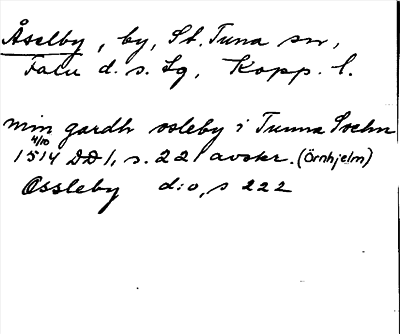 Åselby, by, St. Tuna sn,
Falu d. s. Lg, Kopp. l.
min gardh osleby i Tunna Sochn
4/10
1514 DD 1, s. 221 avskr. (Örnhjelm)
Ossleby d:o, s 222